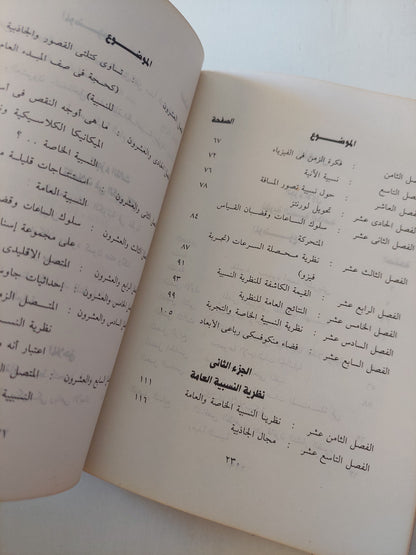 الموضوع الصفحة
الفصل الثامن : فكرة الزمن في الفيزياء ٦٧
الفصل التاسع : نسبية الآنية ٧٢
الفصل العاشر : حول نسبية تصور المسافة ٧٦
الفصل الحادى عشر : تحويل لورنتز ٧٨
الفصل الثانى عشر : سلوك الساعات وقضبان القياس
المتحركة ٨٤
الفصل الثالث عشر : نظرية محصلة السرعات (تجربة
فيزو) ٨٧
الفصل الرابع عشر : القيمة الكاشفة للنظرية النسبية ٩١
الفصل الخامس عشر : النتائج العامة للنظرية ٩٣
الفصل السادس عشر : نظرية النسبية الخاصة والتجربة ٩٩
الفصل السابع عشر : فضاء منكوفسكى رباعى الأبعاد ١٠٥
الجزء الثانى
نظرية النسبية العامة
الفصل الثامن عشر : نظريتا النسبية الخاصة والعامة ١١١
الفصل التاسع عشر : مجال الجاذبية ١١٦
٢٣٠
الموضوع
تساوى كتلتى القصور والجاذبية
(كحجة فى صف المبدء العام
للنسبية)
والعشرون : ما هى أوجه النقص فى
الميكانيكا الكلاسيكية
النسبية الخاصة ..؟
الثانى والعشرون : استنتاجات قليلة
النسبية العامة
الثالث والعشرون : سلوك الساعات
على مجموعة
الرابع والعشرون : المتصل الاقليدى
الخامس والعشرون : إحداثيات
والعشرون : المتصل
نظرية
اعتبار
السابع والعشرون : المتصل
النسبية